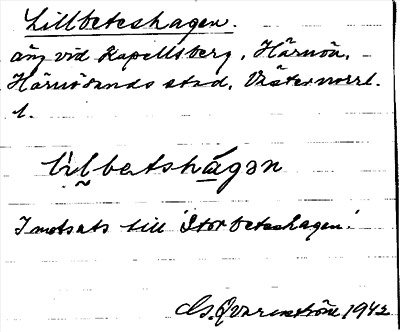 Lillbeteshagen.
äng vid Kapellsberg, Härnön,
Härnösands stad, Västernorrl.
l.
lilbetshágən
I motsats till Storbeteshagen.
G. Qvarnström 1942